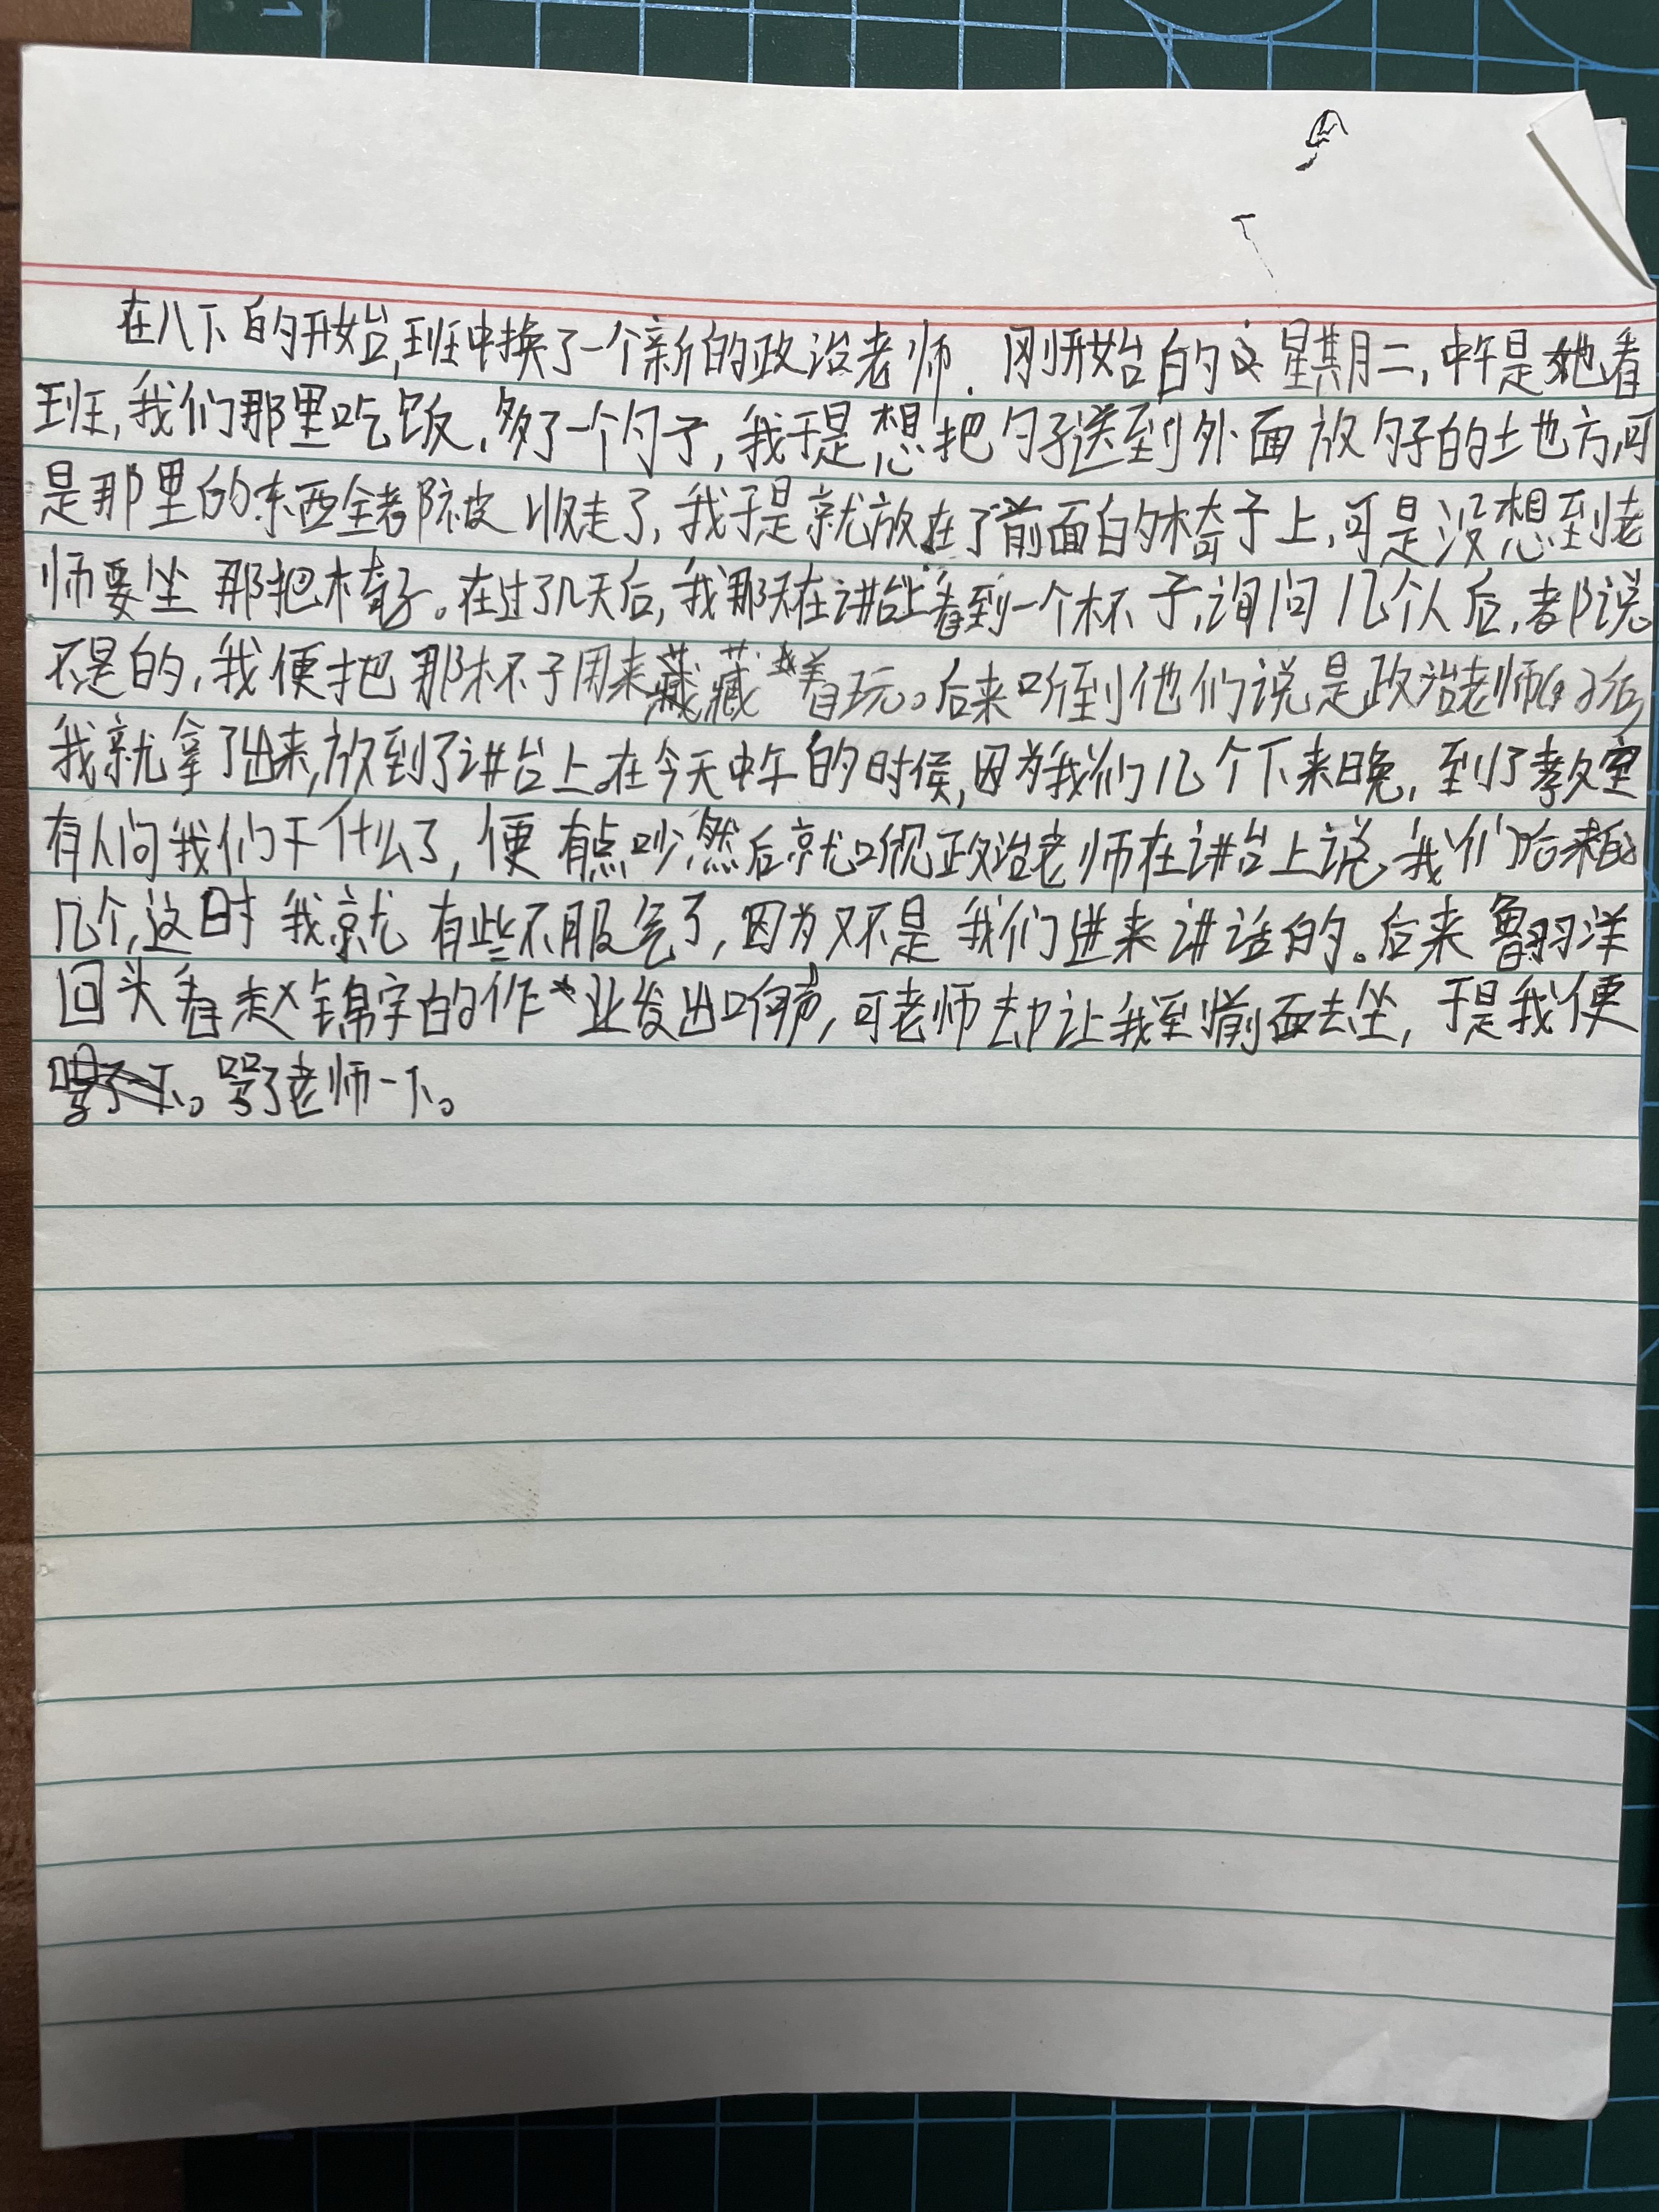 在八下的开始,班中换了一个新的政治老师.刚开始的这星期二,中午是她看
班,我们那里吃饭,多了一个勺子,我于是想把勺子送到外面放勺子的土地方,可
是那里的东西全都被收走了,我于是就放在了前面的椅子上,可是没想到老
师要坐那把椅子。在过了几天后,我那天在讲台上看到一个杯子,询问几个人后,都说
不是的,我便把那杯子用来藏藏着玩。后来听到他们说是政治老师的后,
我就拿了出来,放到了讲台上。在今天中午的时候,因为我们几个下来晚,到了教室
有人问我们干什么了,便有点吵,然后就听见政治老师在讲台上说我们后来的
几个,这时我就有些不服气了,因为又不是我们进来讲话的。后来鲁羽洋
回头看赵锦宇的作业发出响声,可老师却让我到前面去坐,于是我便
骂了老师一下。